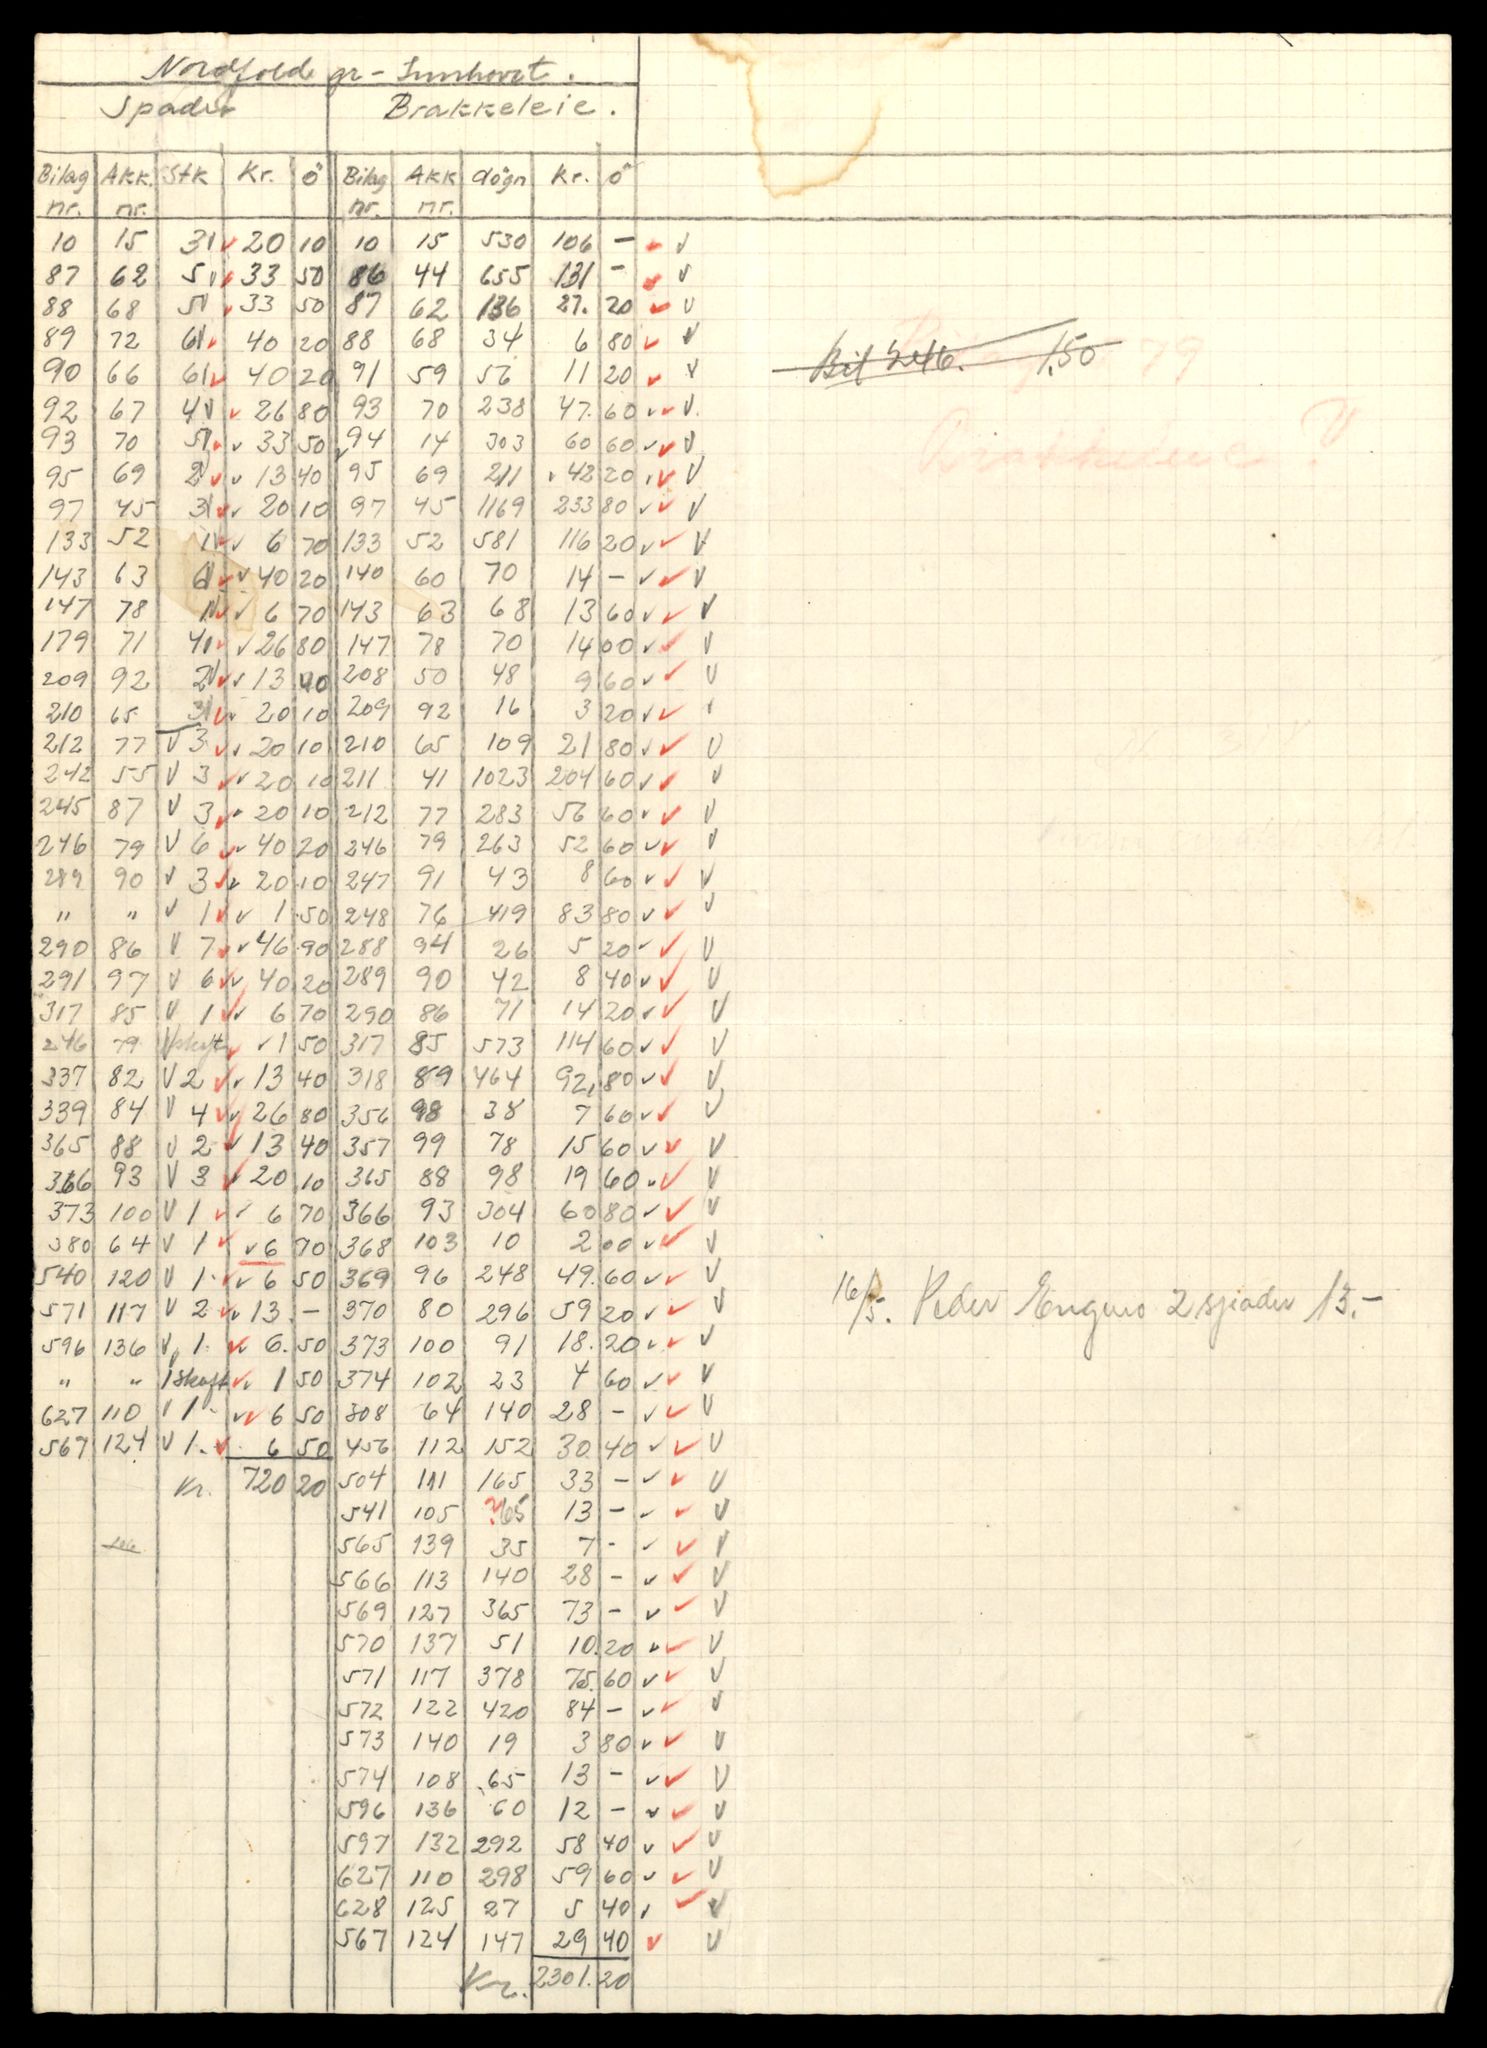 Nordfold gr - Sunhovet.
Spader Brakkeleie.
Bilag nr. Akk. nr. Stk Kr. Ö Bilag nr. Akk nr. døgn kr. ö
10 15 3 20 10 10 15 530 106 -
87 62 5 33 50 86 44 655 131 -
88 68 5 33 50 87 62 136 27. 20
89 72 6 40 20 88 68 34 6 80
90 66 6 40 20 91 59 56 11 20
92 67 4 26 80 93 70 238 47. 60
93 70 5 33 50 94 14 303 60 60
95 69 2 13 40 95 69 211 42 20
97 45 3 20 10 97 45 1169 233 80
133 52 1 6 70 133 52 581 116 20
143 63 6 40 20 140 60 70 14 -
147 78 1 6 70 143 63 68 13 60
179 71 4 26 80 147 78 70 14 00
209 92 2 13 40 208 50 48 9 60
210 65 3 20 10 209 92 16 3 20
212 77 3 20 10 210 65 109 21 80
242 55 3 20 10 211 41 1023 204 60
245 87 3 20 10 212 77 283 56 60
246 79 6 40 20 246 79 263 52 60
289 90 3 20 10 247 91 43 8 60
" " 1 1 50 248 76 419 83 80
290 86 7 46 90 288 94 26 5 20
291 97 6 40 20 289 90 42 8 40
317 85 1 6 70 290 86 71 14 20
246 79 1 skaft 1 50 317 85 573 114 60
337 82 2 13 40 318 89 464 92, 80
339 84 4 26 80 356 98 38 7 60
365 88 2 13 40 357 99 78 15 60
366 93 3 20 10 365 88 98 19 60
373 100 1 6 70 366 93 304 60 80
380 64 1 6 70 368 103 10 2 00
540 120 1 6 50 369 96 248 49. 60
571 117 2 13 - 370 80 296 59 20
596 136 1 6. 50 373 100 91 18. 20
" " 1 skaft 1 50 374 102 23 4 60
627 110 1 6 50 308 64 140 28 -
567 124 1 6 50 456 112 152 30 40
Kr. 720 20 504 111 165 33 -
541 105 ?65 13 -
565 139 35 7 -
566 113 140 28 -
569 127 365 73 -
570 137 51 10. 20
571 117 378 75. 60
572 122 420 84 -
573 140 19 3 80
574 108 65 13 -
596 136 60 12 -
597 132 292 58 40
627 110 298 59 60
628 125 27 5 40
567 124 147 29 40
Kr. 2301. 20
Bil 246. 1,50
16/5. Peder Enguro 2 spader 13.-